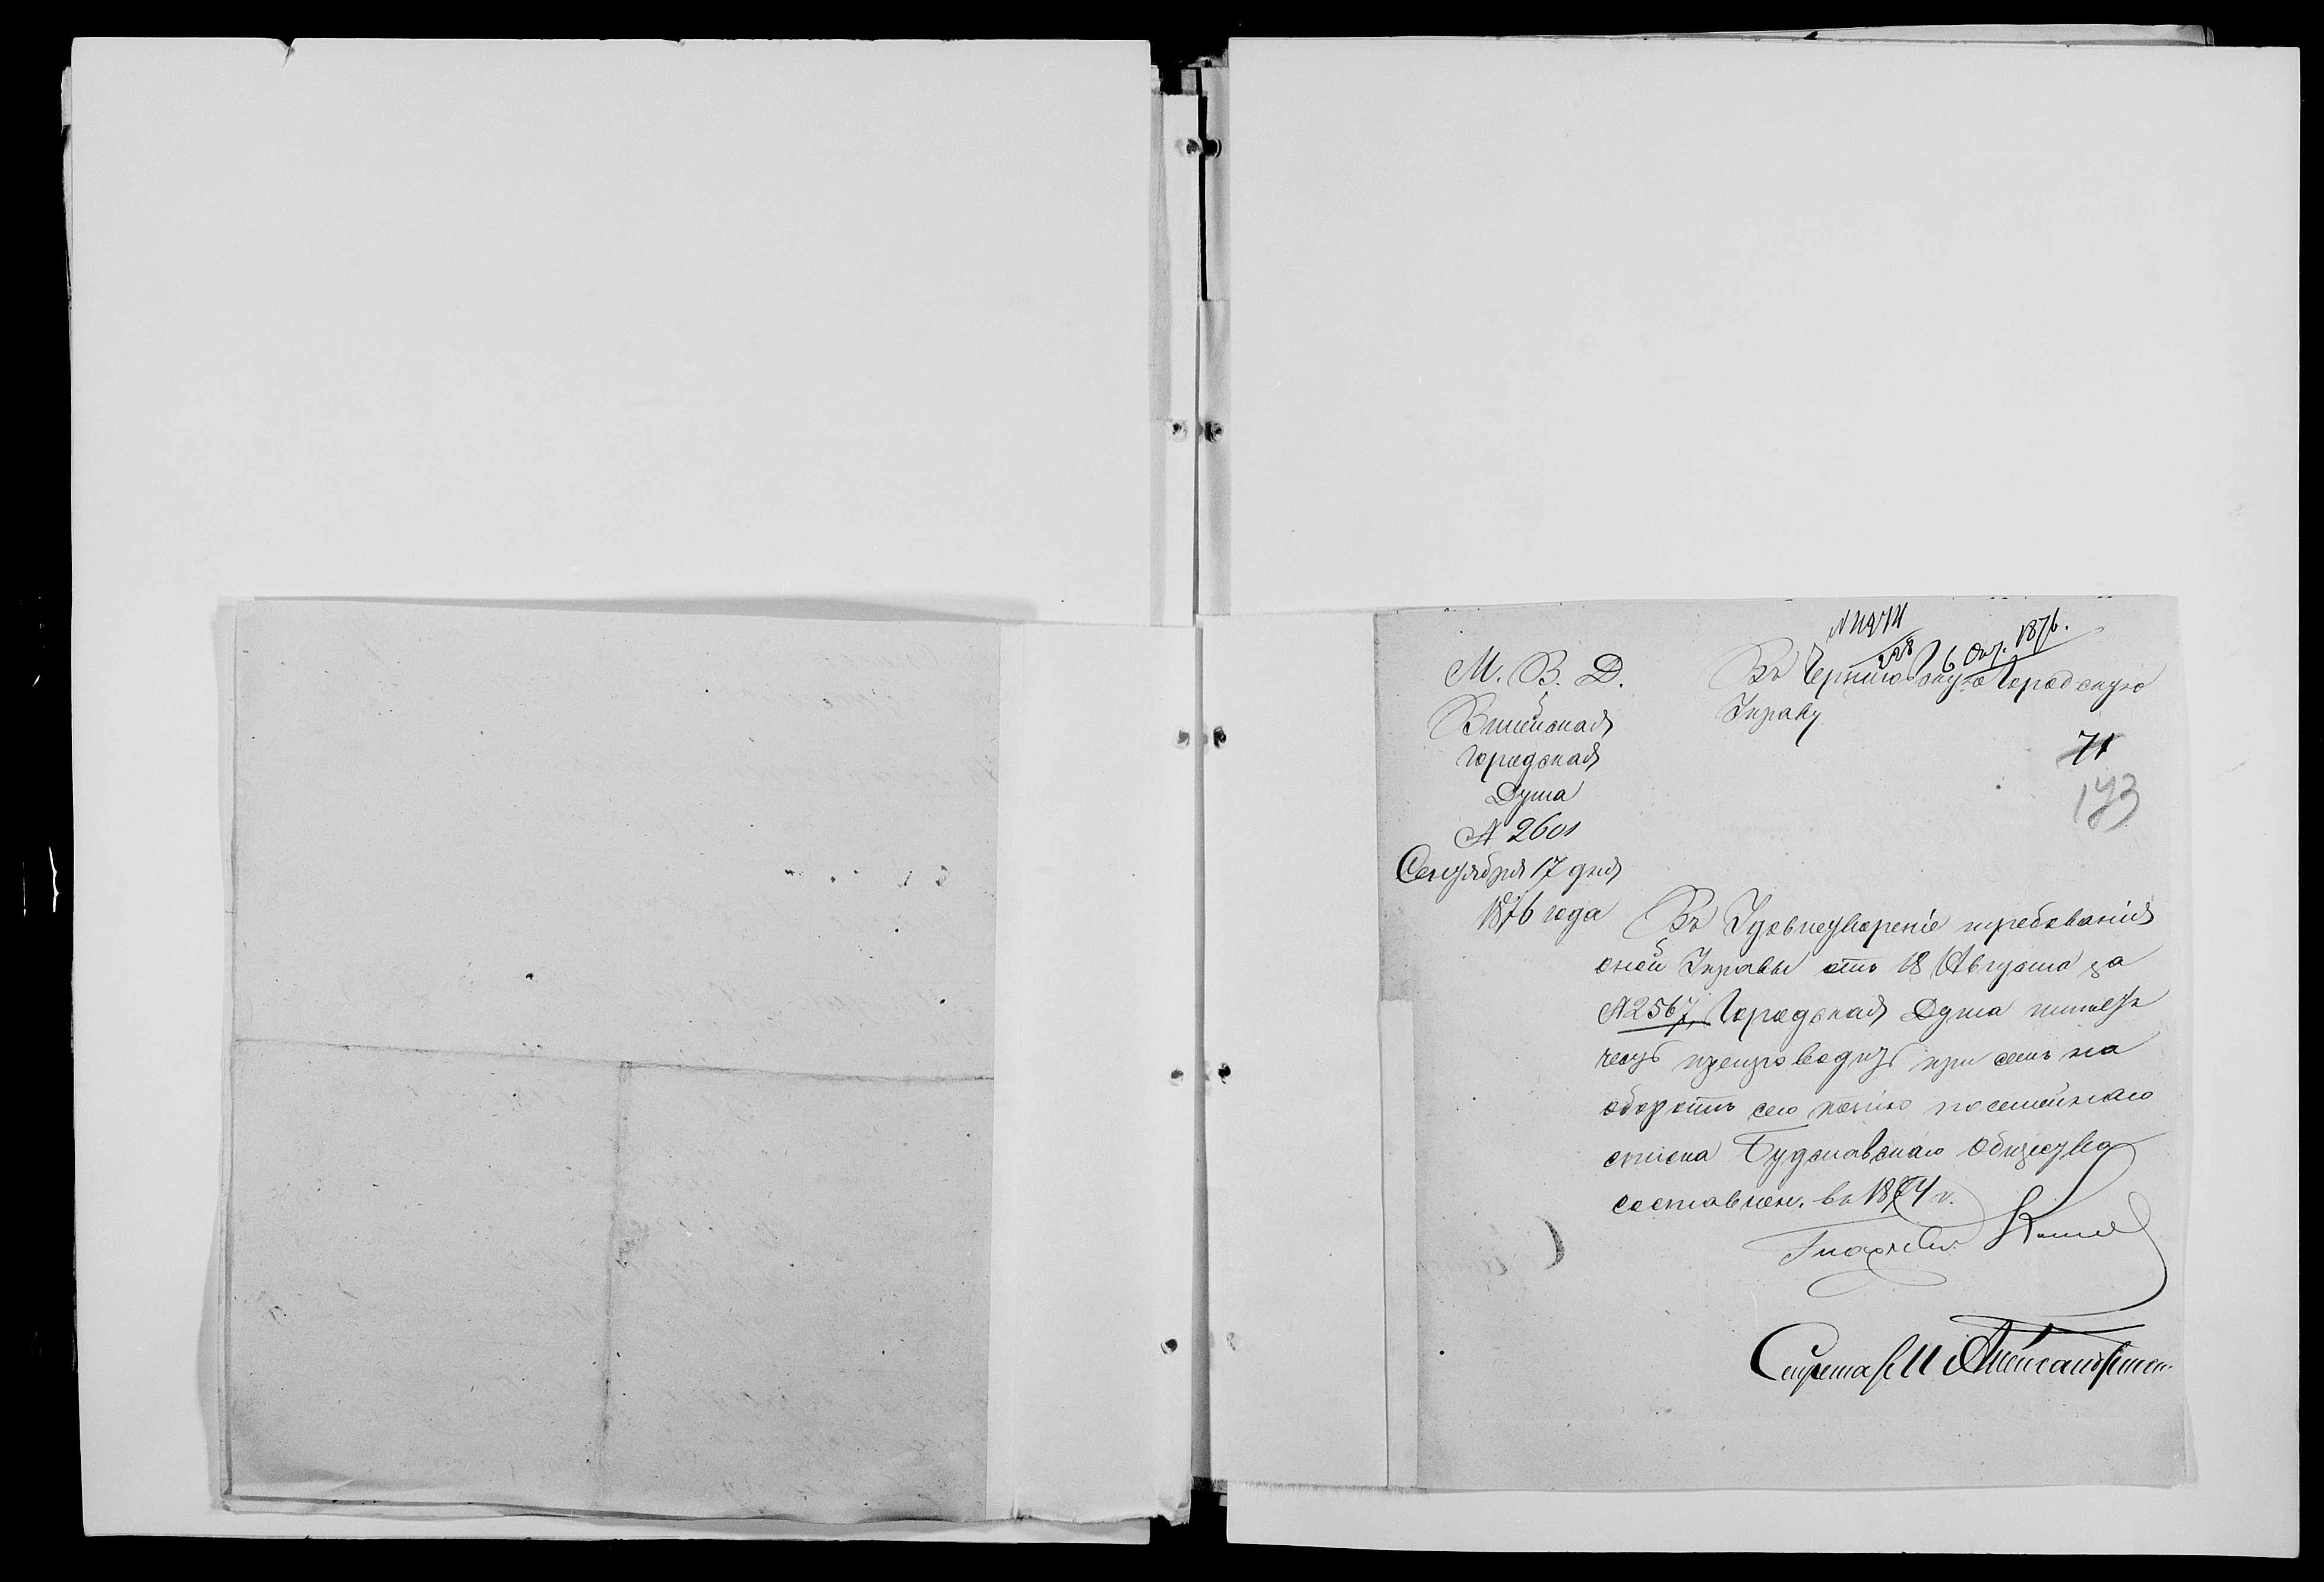 М. В. Д.
Вилейская
Городская
Дума
№ 2601
Сентября 17 дня
1876 года
6 Окт. 1876.
Въ Черниговскую Городскую
Управу
71
173
Въ Удовлетвореніе требованія
оной Управы отъ 18 Августа за
№ 2567, Городская Дума имѣетъ
честь препроводить при семъ на
оборотѣ сего копію посемейнаго
списка Будславскаго Общества
составлен. въ 1874 г.
Секретарь